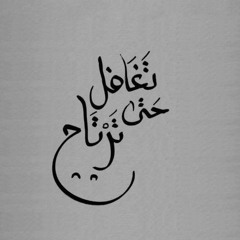 تَغَافل
حَتىٰ
تَرْتَاح